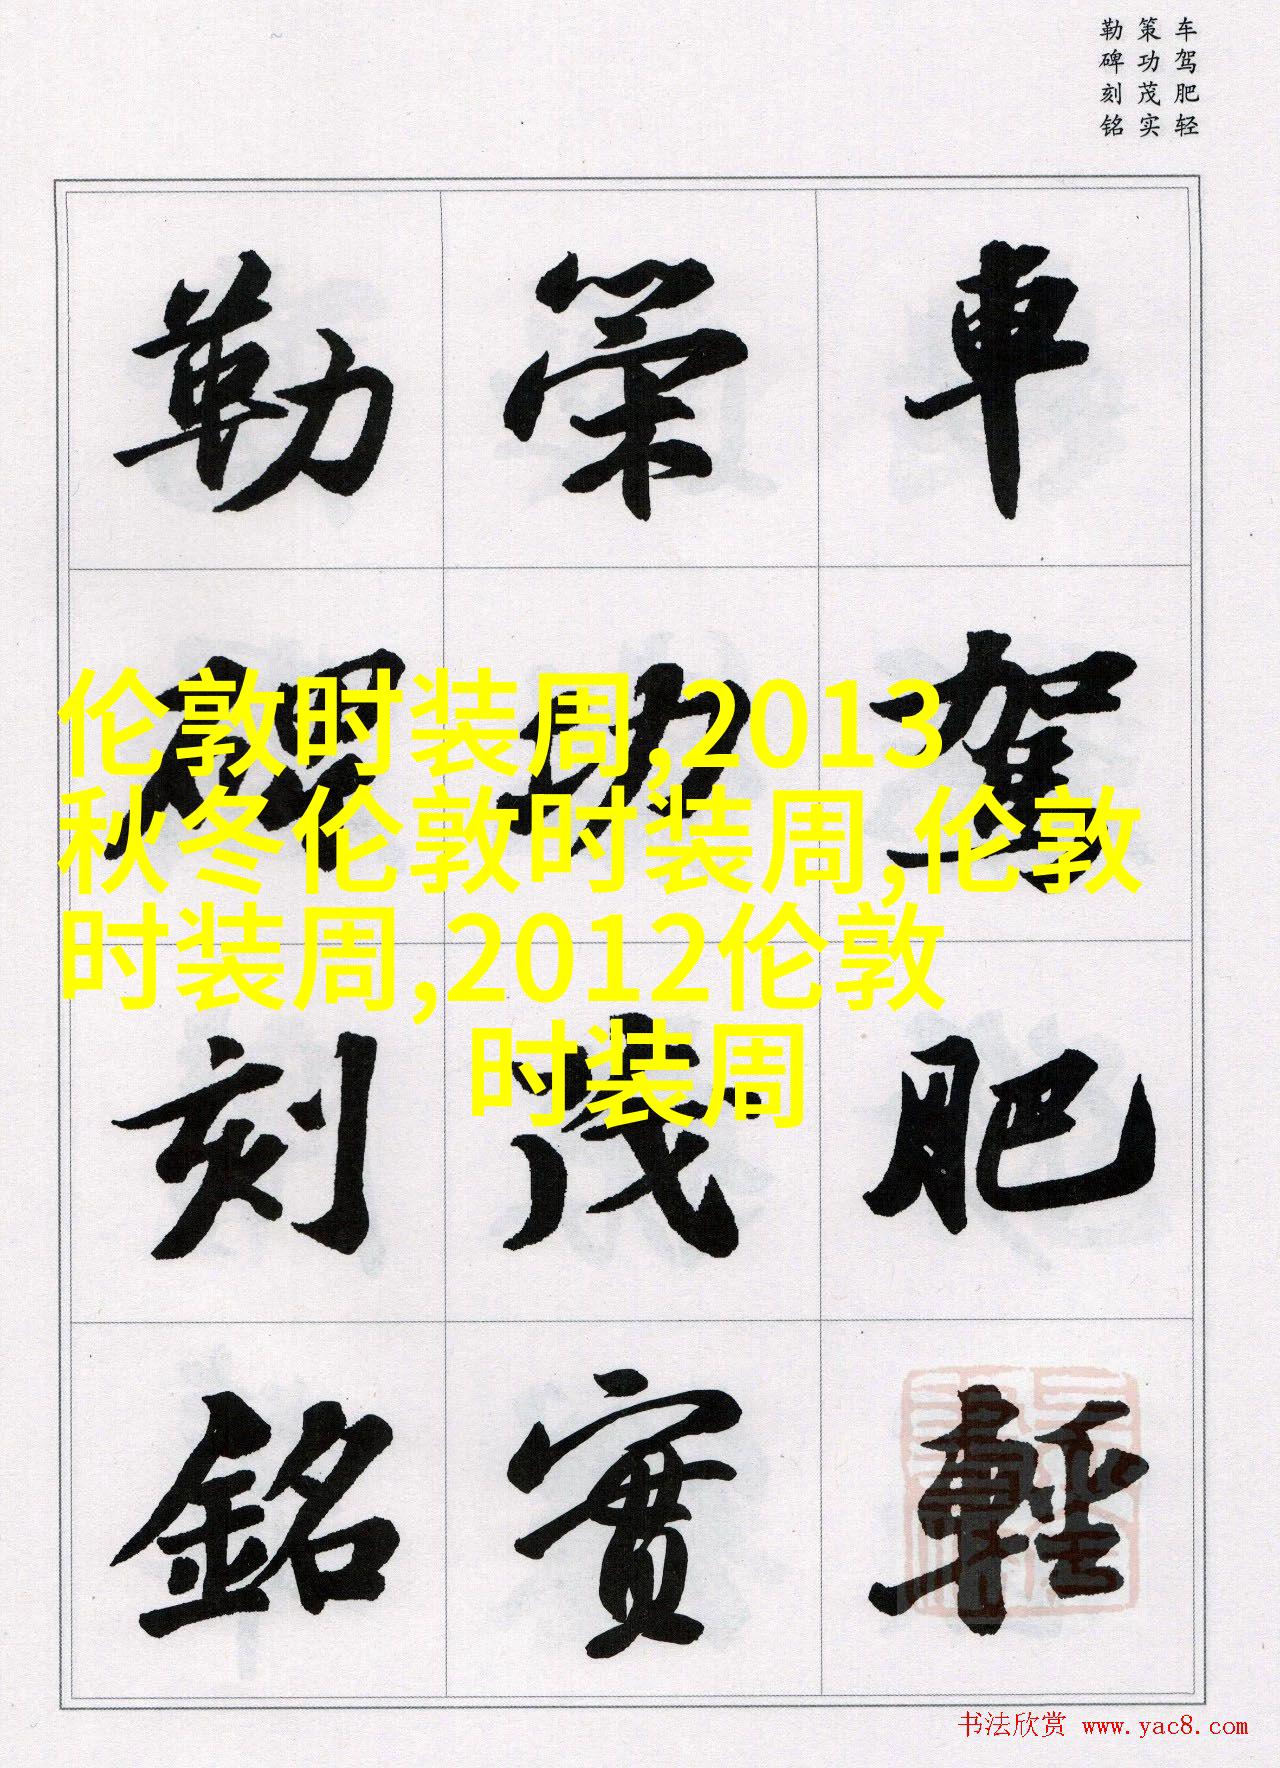 车驾肥轻
策功茂实
勒碑刻铭
車駕肥輕
策功茂實
勒碑刻銘
伦敦时装周,2013
秋冬伦敦时装周,伦敦
时装周,2012伦敦
时装周
书法欣赏 www.yac8.com